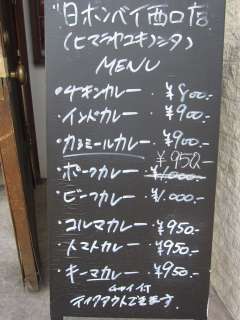 "日ホンベイ西口店
(ヒマラヤユキノシタ)
MENU
・チキンカレー・¥800-
・インドカレー・¥900-
・カシミールカレー・¥900-
・ポークカレー・¥950- ¥1000-
・ビーフカレー・¥1.000-
・コルマカレー・¥950-
・トマトカレー・¥950-
・キーマカレー・¥950-
テイクアウトできます